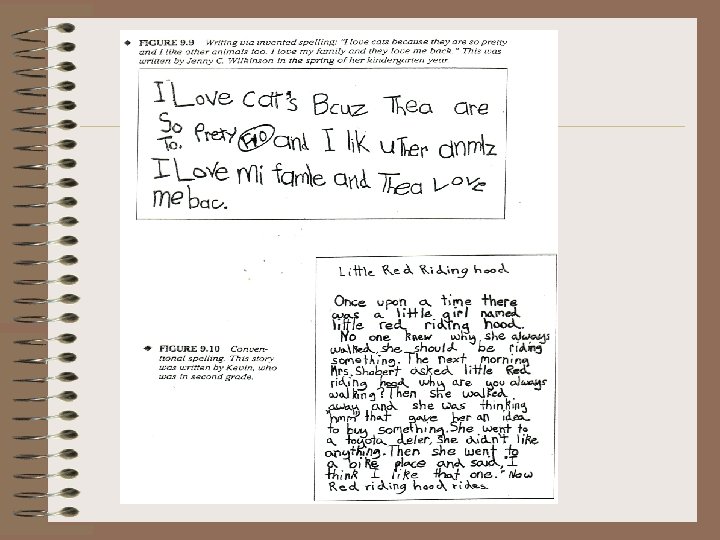 FIGURE 9.9 Writing via invented spelling: "I love cats because they are so pretty
and I like other animals too. I love my family and they love me back." This was
written by Jenny C. Wilkinson in the spring of her kindergarten year.
I Love Cat's Bcuz Thea are
So Prety and I lik uTher anmlz
To.
I Love mi famle and Thea Love
me bac.
Little Red Riding hood
Once upon a time there
was a little girl named
little red riding hood.
No one knew why she always
walked, she should be riding
something. The next morning
Mrs. Shobert asked little Red
riding hood why are you always
walking? Then she walked
away and she was thinking
"hmm" that gave her an idea
to buy something. She went to
a toyota deler, she didn't like
anything. Then she went to
a bike place and said, "I
think I like that one." Now
Red riding hood rides.
FIGURE 9.10 Conven-
tional spelling. This story
was written by Kevin, who
was in second grade.